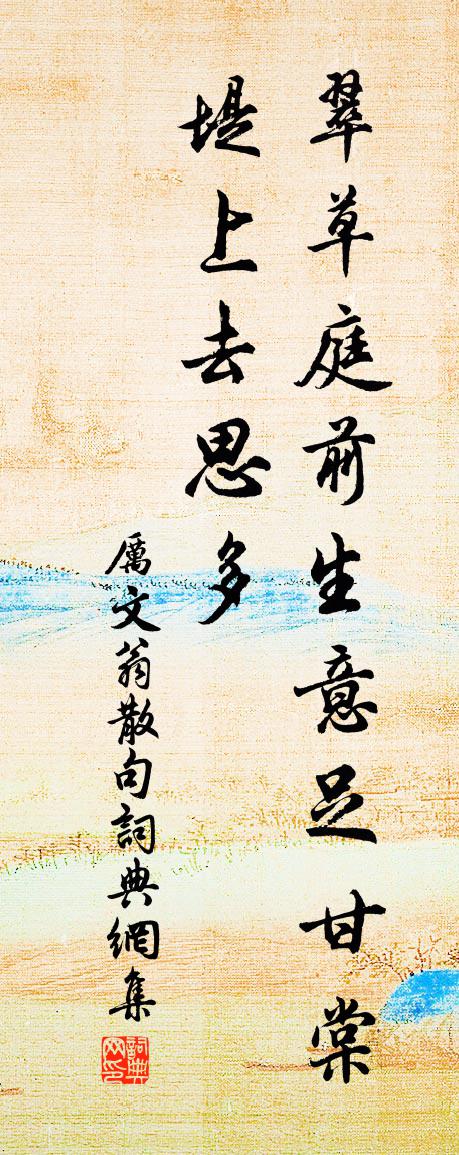 翠草庭前生意足甘棠
堤上去思多
厲文翁散句詞典網集
詞典網印